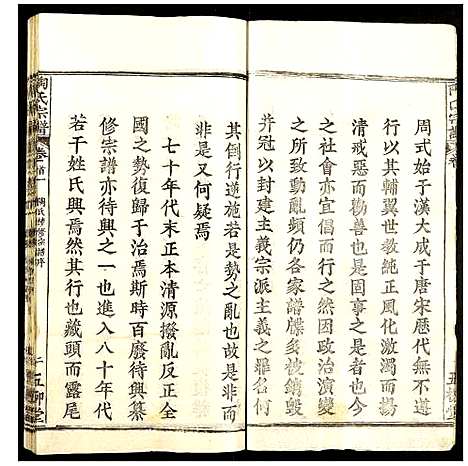 周式始于漢大成于唐宋歷代無不遵
行以其輔翼世教純正風化激濁而揚
清戒惡而勸善也固是事
之所亦宜倡而行之然由于社會因素
之所致動亂頻仍各家譜牒多被鎸毀
并冠以封建主義宗派主義之罪名何
其倒行逆施若是勢之亂也故是與
非是又何疑焉
七十年代末正本清源撥亂反正而
國之勢復歸于治焉斯時百廢待興纂
修宗譜亦待興之一也進入八十年代
若干姓氏興焉然其行也藏頭而露尾
陶氏宗譜
卷首一
五柳堂